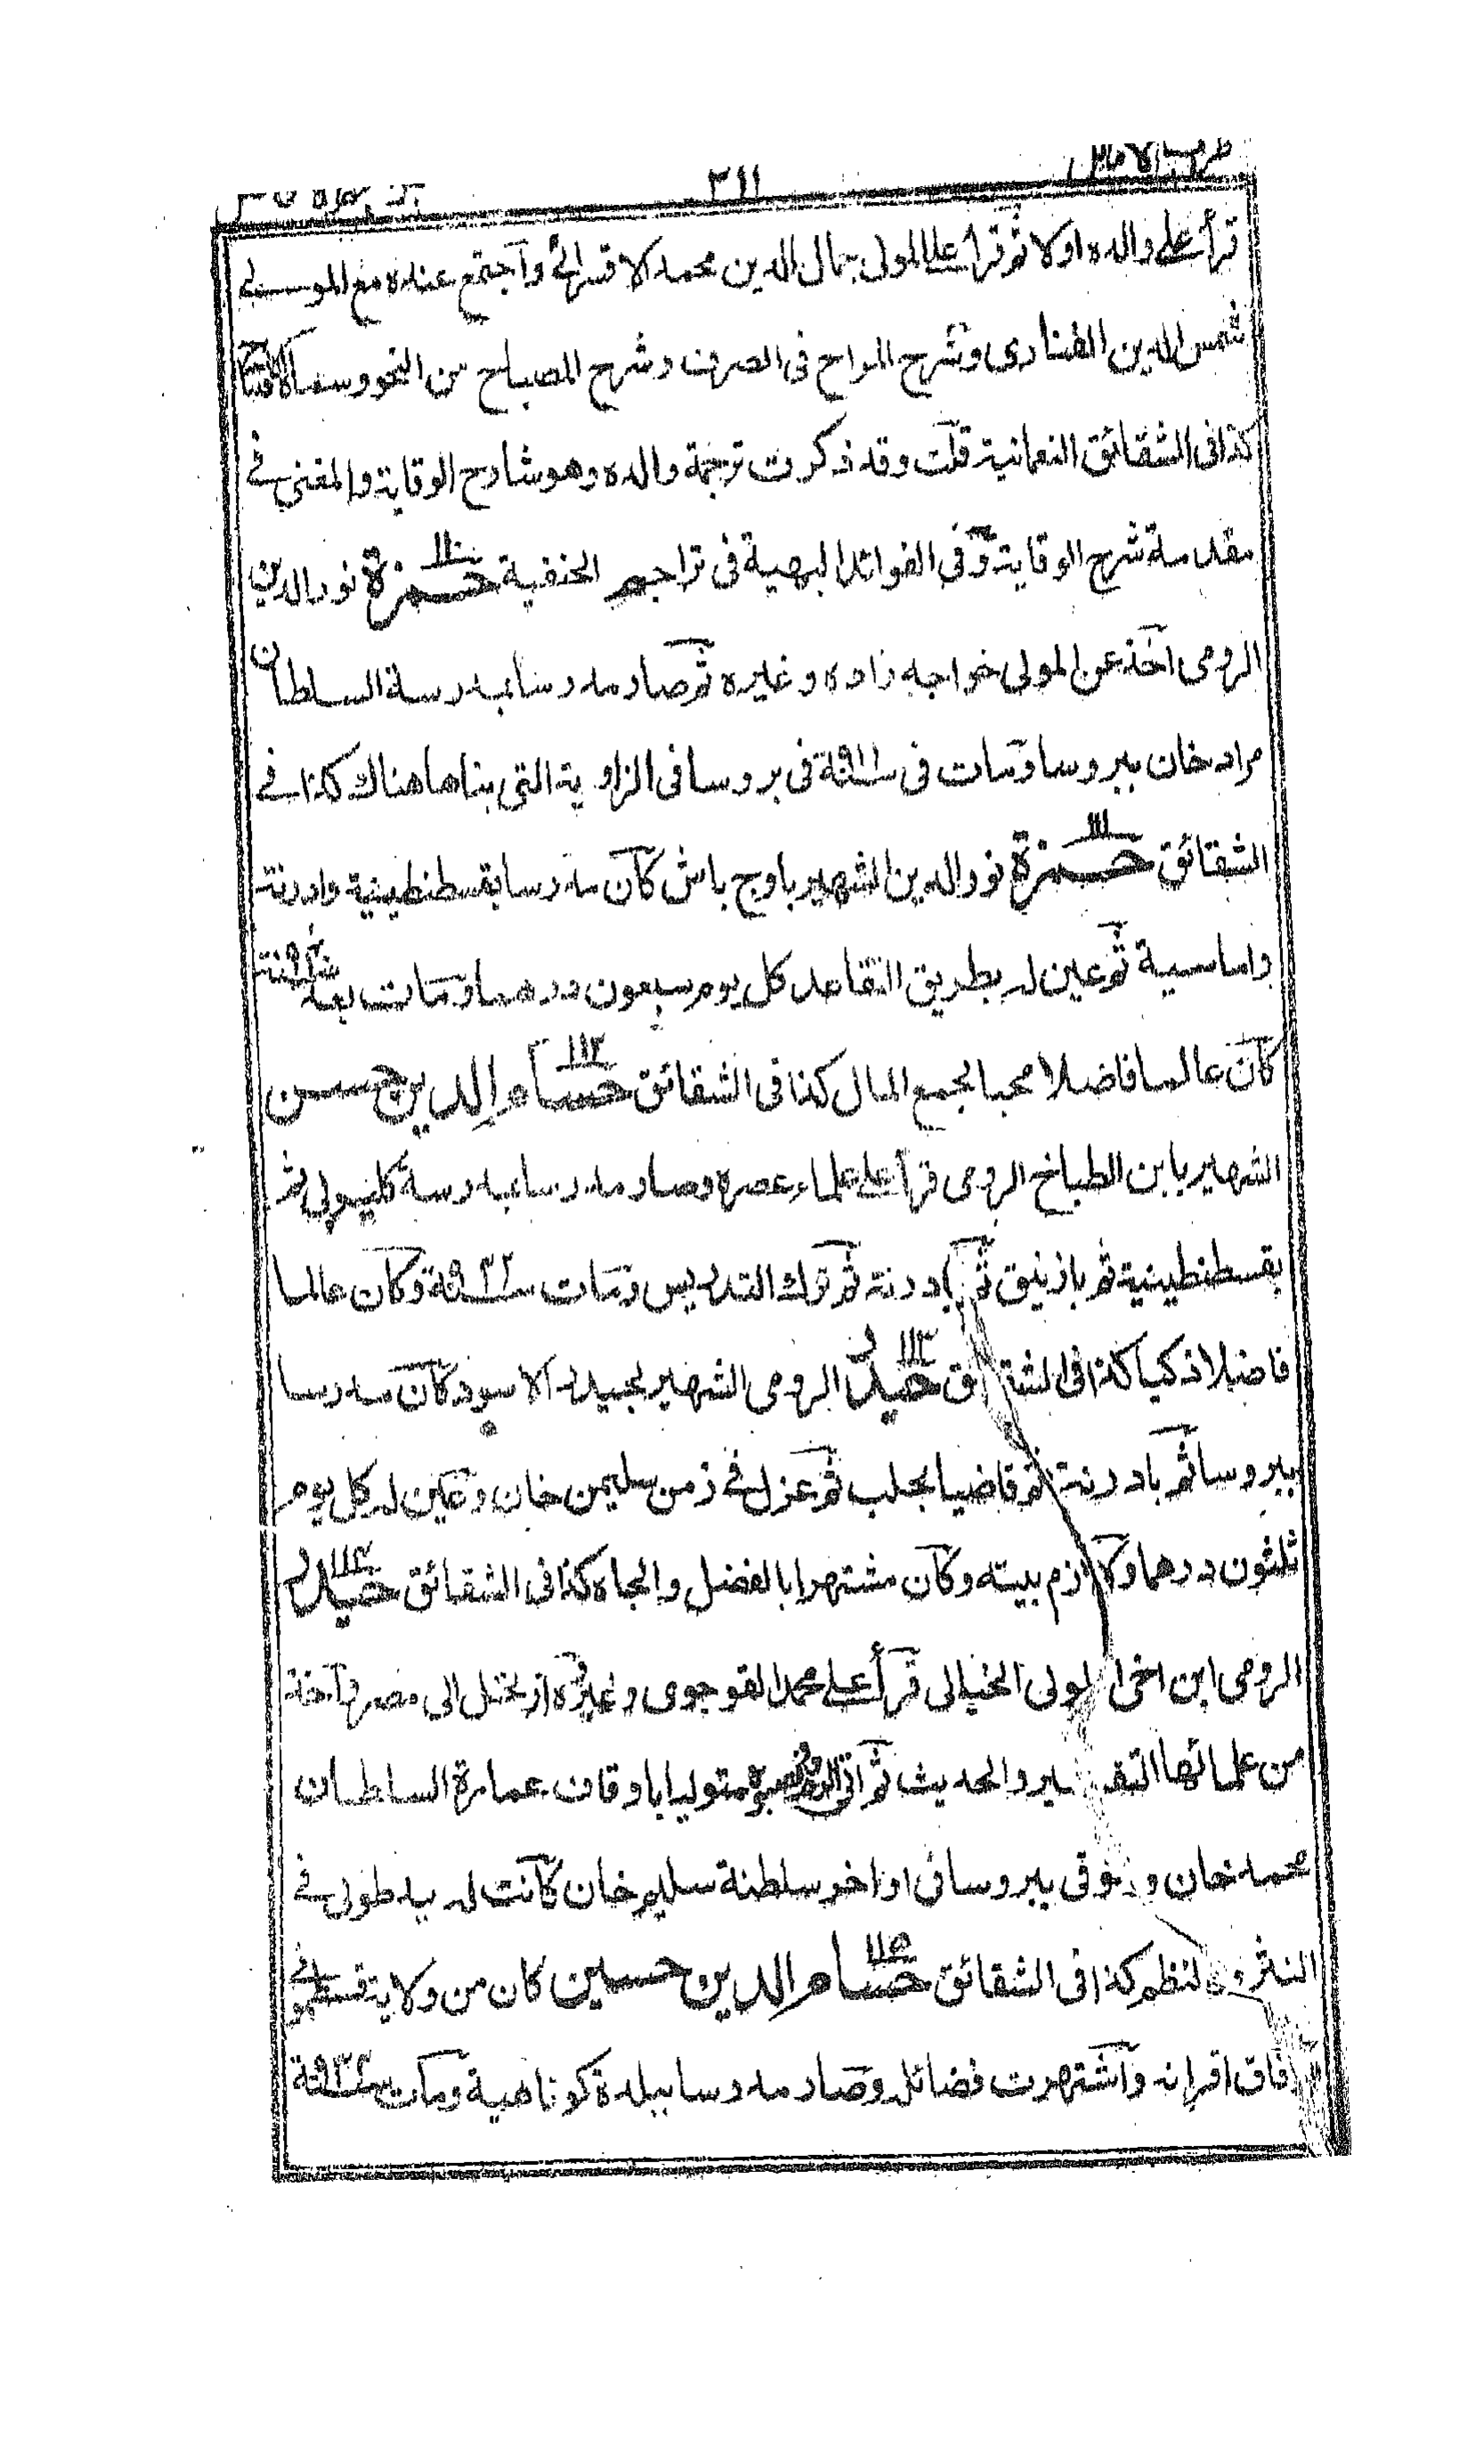 طرب الاماثل ٣١١
قرأ علے والده اولا ثم قرأ علے المولی جمال الدین محمد الاقسرائے واجتمع عنده مع المولے
شمس الدین الفناری وشرح المراح فی الصرف وشرح المصباح من النحو وسماه الافتتاح
کذا فی الشقائق النعمانیة قلت وقد ذکرت ترجمة والده وهو شارح الوقایة والمغنی فے
مقدمة شرح الوقایة وفی الفوائد البهیة فی تراجم الحنفیة ١١٠ حمزة نور الدین
الرومی اخذ عن المولی خواجه زاده وغیره ثم صار مدرسا بمدرسة السلطان
مراد خان ببروسا ومات فی سنة ٩١٢ فی بروسا فی الزاویة التی بناها هناك کذا فے
الشقائق ١١١ حمزة نور الدین الشهیر باوج باش کان مدرسا بقسطنطینیة وادرنة
واماسیة ثم عین له بطریق التقاعد کل یوم سبعون درهما ومات بعد سنة
کان عالما فاضلا محبا لجمع المال کذا فی الشقائق ١١٢ حسام الدین حسن
الشهیر بابن الطباخ الرومی قرأ علے علماء عصره وصار مدرسا بمدرسة کلیبولی ثم
بقسطنطینیة ثم بازنیق ثم بادرنة ثم ترك التدریس ومات سنة ٩٢٢ وکان عالما
فاضلا ذکیا کذا فی الشقائق ١١٣ حیدر الرومی الشهیر بحیدر الاسود کان مدرسا
ببروسا ثم بادرنة ثم قاضیا بحلب ثم عزل فے زمن سلیمن خان وعین له کل یوم
ثلثون درهما ولازم بیته وکان مشتهرا بالفضل والجاه کذا فی الشقائق ١١٤ حیدر
الرومی ابن اخ المولی الخیالی قرأ علے محمد القوجوی وغیره ثم ارتحل الی مصر واخذ
من علمائها التفسیر والحدیث ثم اتی الروم وصیره متولیا باوقاف عمارة السلطان
محمد خان وتوفی ببروسا فی اواخر سلطنة سلیم خان کانت له ید طولی فے
النثر والنظم کذا فی الشقائق ١١٥ حسام الدین حسین کان من ولایة قسطمونی
وفاق اقرانه واشتهرت فضائله وصار مدرسا ببلدة کوتاهیة ومات سنة ٩٣٤